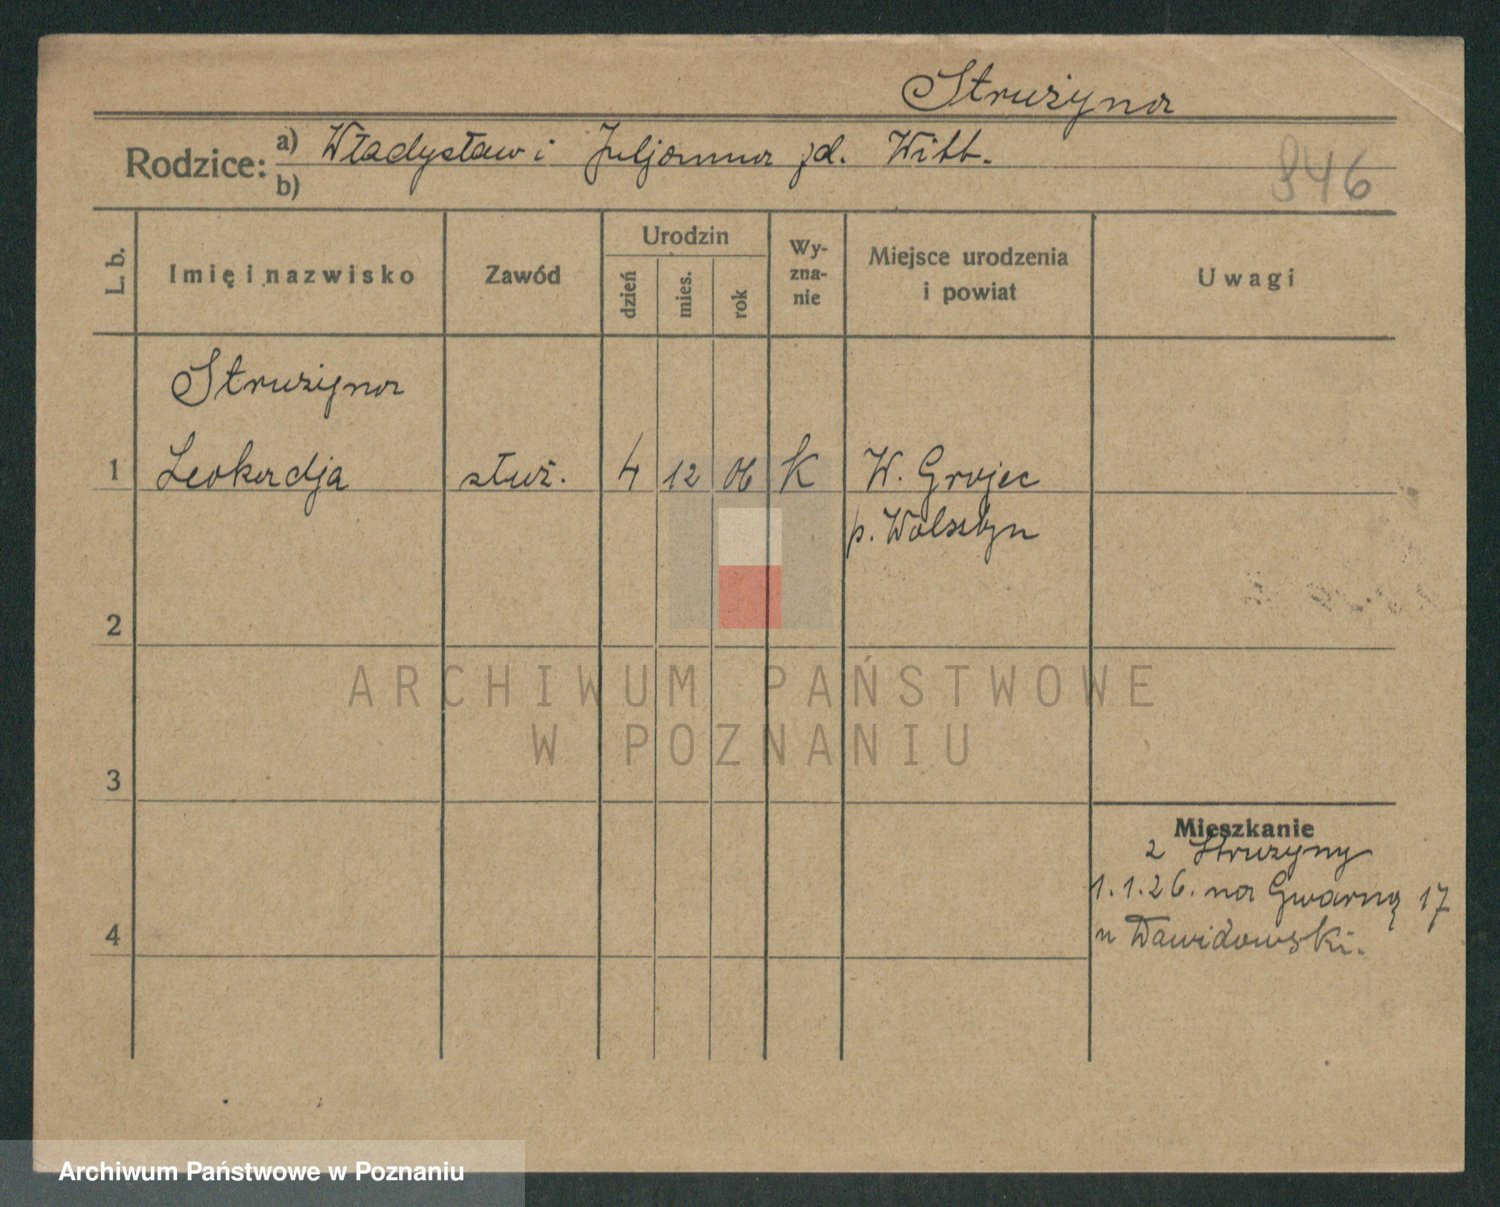 Strużyna
Rodzice: a) Władysław i Juljanna zd. Witt.
b)
946
L. b.
Imię i nazwisko
Zawód
Urodzin
dzień
mies.
rok
Wy-
zna-
nie
Miejsce urodzenia
i powiat
Uwagi
Strużyna
1 Leokadja służ. 4 12 06 K W. Grojec
p. Wolsztyn
2
3
4
Mieszkanie
z Strużyny
1.1.26. na Gwarną 17
u Dawidowski.
ARCHIWUM PAŃSTWOWE
W POZNANIU
Archiwum Państwowe w Poznaniu